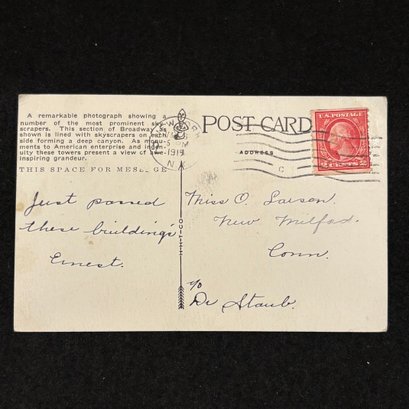 A remarkable photograph showing a
number of the most prominent sky-
scrapers. This section of Broadway as
shown is lined with skyscrapers on each
side forming a deep canyon. As monu-
ments to American enterprise and
these towers present a view of
inspiring grandeur.
THIS SPACE FOR MESSAGE
Just passed
these buildings
Ernest.
POST CARD
ADDRESS
U.S. POSTAGE
1919
N.Y.
Miss O. Laison.
New Milford
Conn.
c/o
Dr Staub.